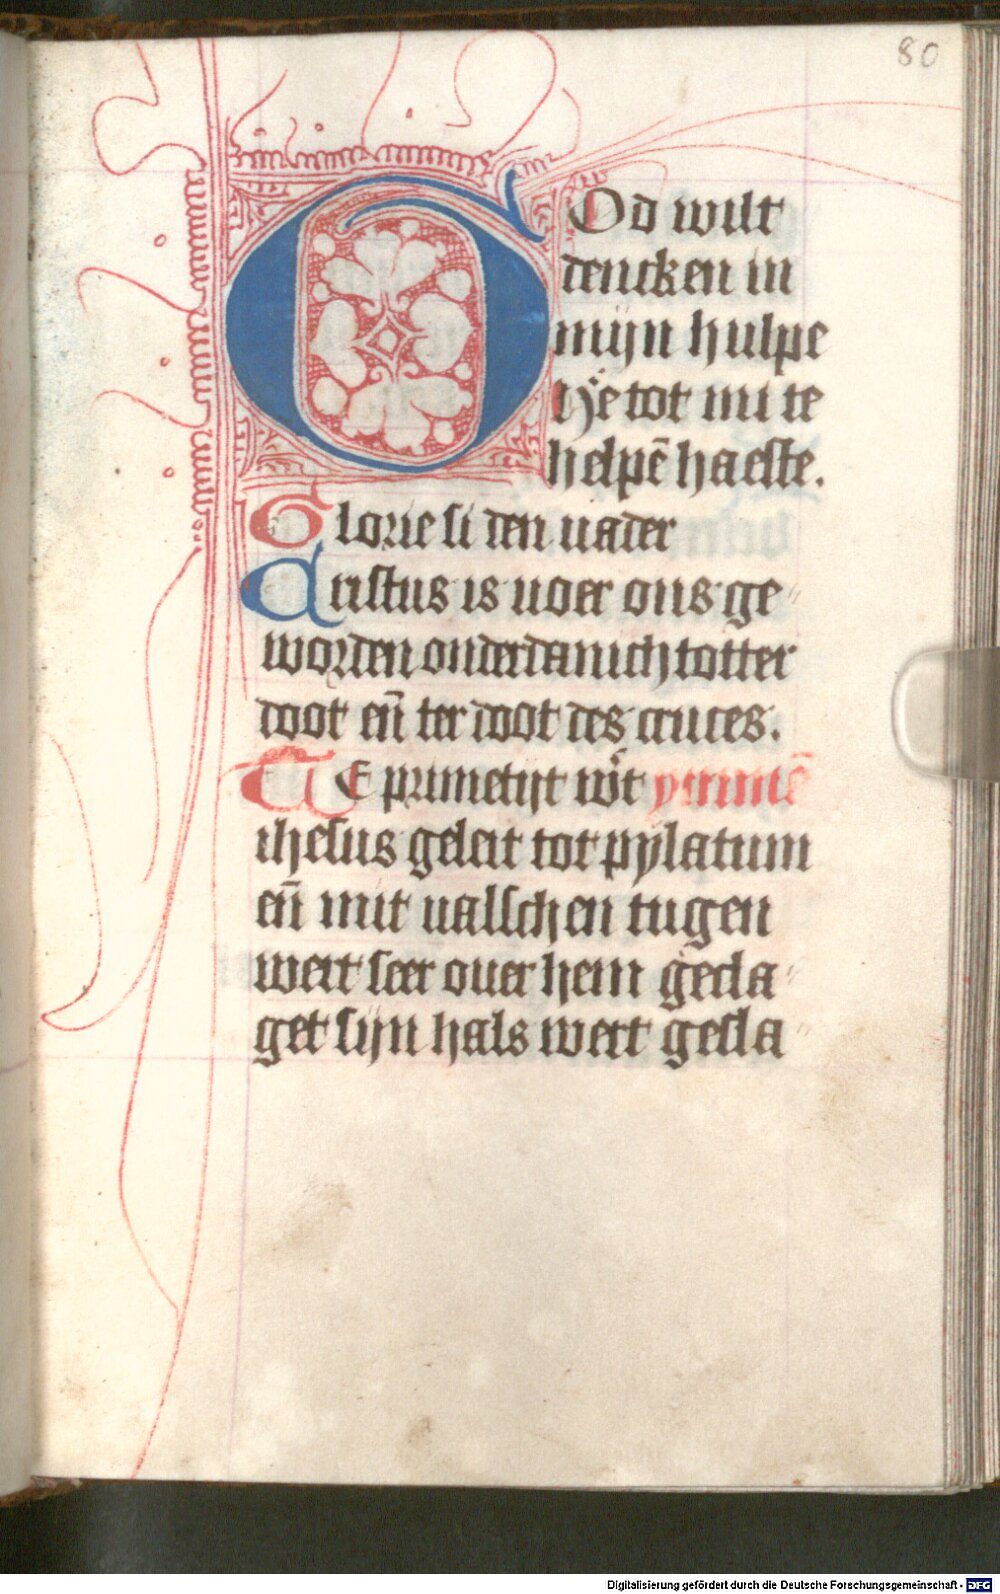 80
G Od wilt
dencken in
mijn hulpe
h'e tot mi te
helpē haeste.
Glorie si den uader
Cristus is uoer ons ge〃
worden onderdanich totter
doot eñ ter doot des cruces.
TE primetijt wͥt ymmē
ihesus geleit tot pylatum
eñ mit ualschen tugen
wert seer ouer hem gecla〃
get sijn hals wert gesla
Digitalisierung gefördert durch die Deutsche Forschungsgemeinschaft - DFG